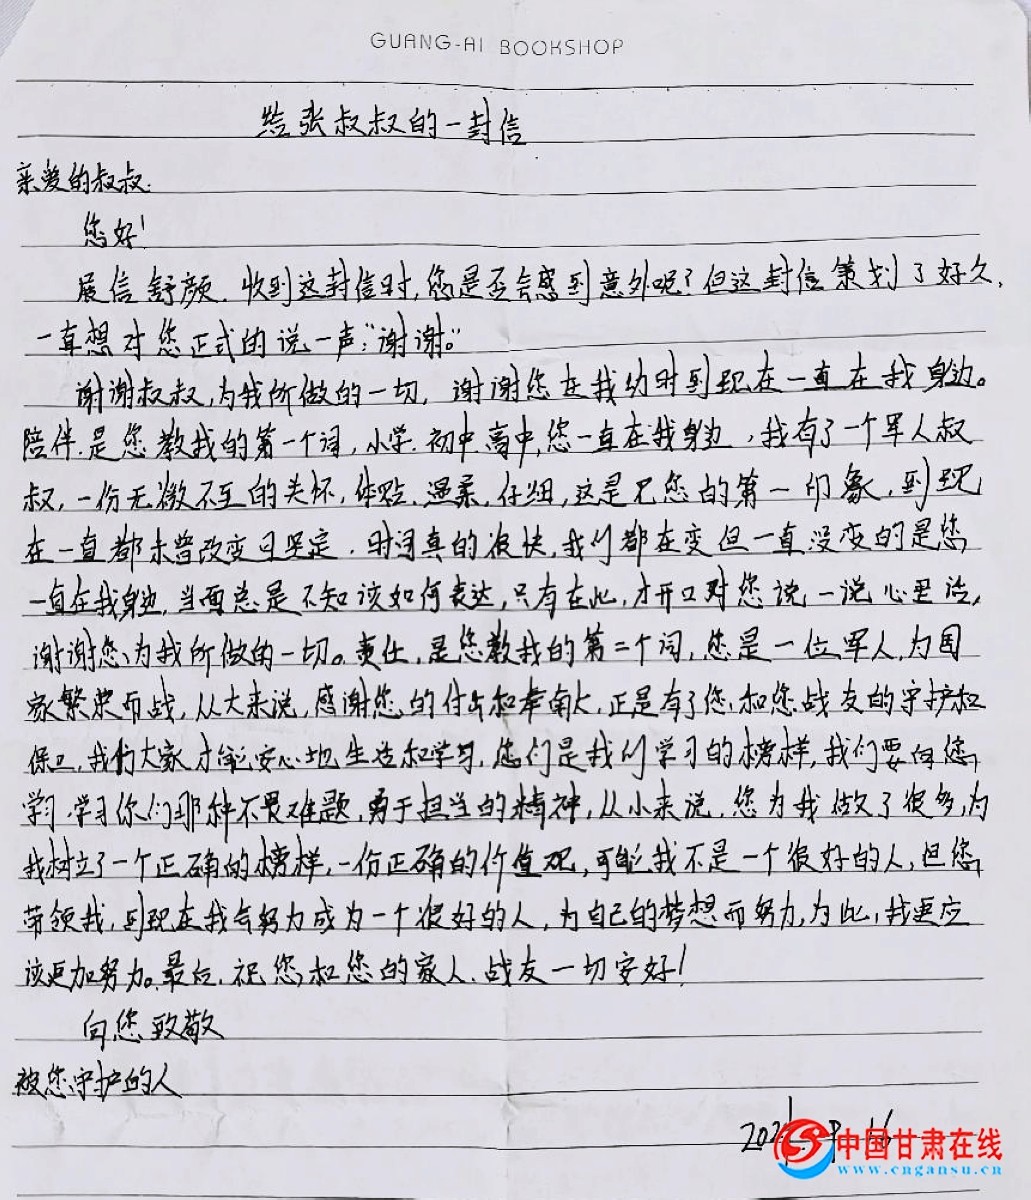 GUANG-AI BOOKSHOP
给张叔叔的一封信
亲爱的叔叔:
您好!
展信舒颜.收到这封信时,您是否会感到意外呢?但这封信策划了好久,
一直想对您正式的说一声:“谢谢。”
谢谢叔叔,为我所做的一切,谢谢您在我幼时到现在一直在我身边。
陪伴.是您教我的第一个词,小学.初中.高中,您一直在我身边,我有了一个军人叔
叔,一份无微不至的关怀,体贴.温柔.仔细,这是见您的第一印象,到现
在一直都未曾改变日坚定.时间真的很快,我们都在变但一直没变的是您
一直在我身边,当面总是不知该如何表达,只有在此,才开口对您说一说心里话,
谢谢您,为我所做的一切。责任,是您教我的第二个词,您是一位军人,为国
家繁荣而战,从大来说,感谢您的付出和奉献,正是有了您,和您战友的守护和
保卫,我们大家才能安心地生活和学习,您们是我们学习的榜样,我们要向您
学习.学习你们那种不畏难题,勇于担当的精神,从小来说,您为我做了很多,为
我树立了一个正确的榜样,一份正确的价值观,可能我不是一个很好的人,但您
带领我,到现在我会努力成为一个很好的人,为自己的梦想而努力,为此,我更应
该更加努力。最后,祝您,和您的家人.战友一切安好!
向您致敬
被您守护的人
202 16
中国甘肃在线
www.cngansu.cn